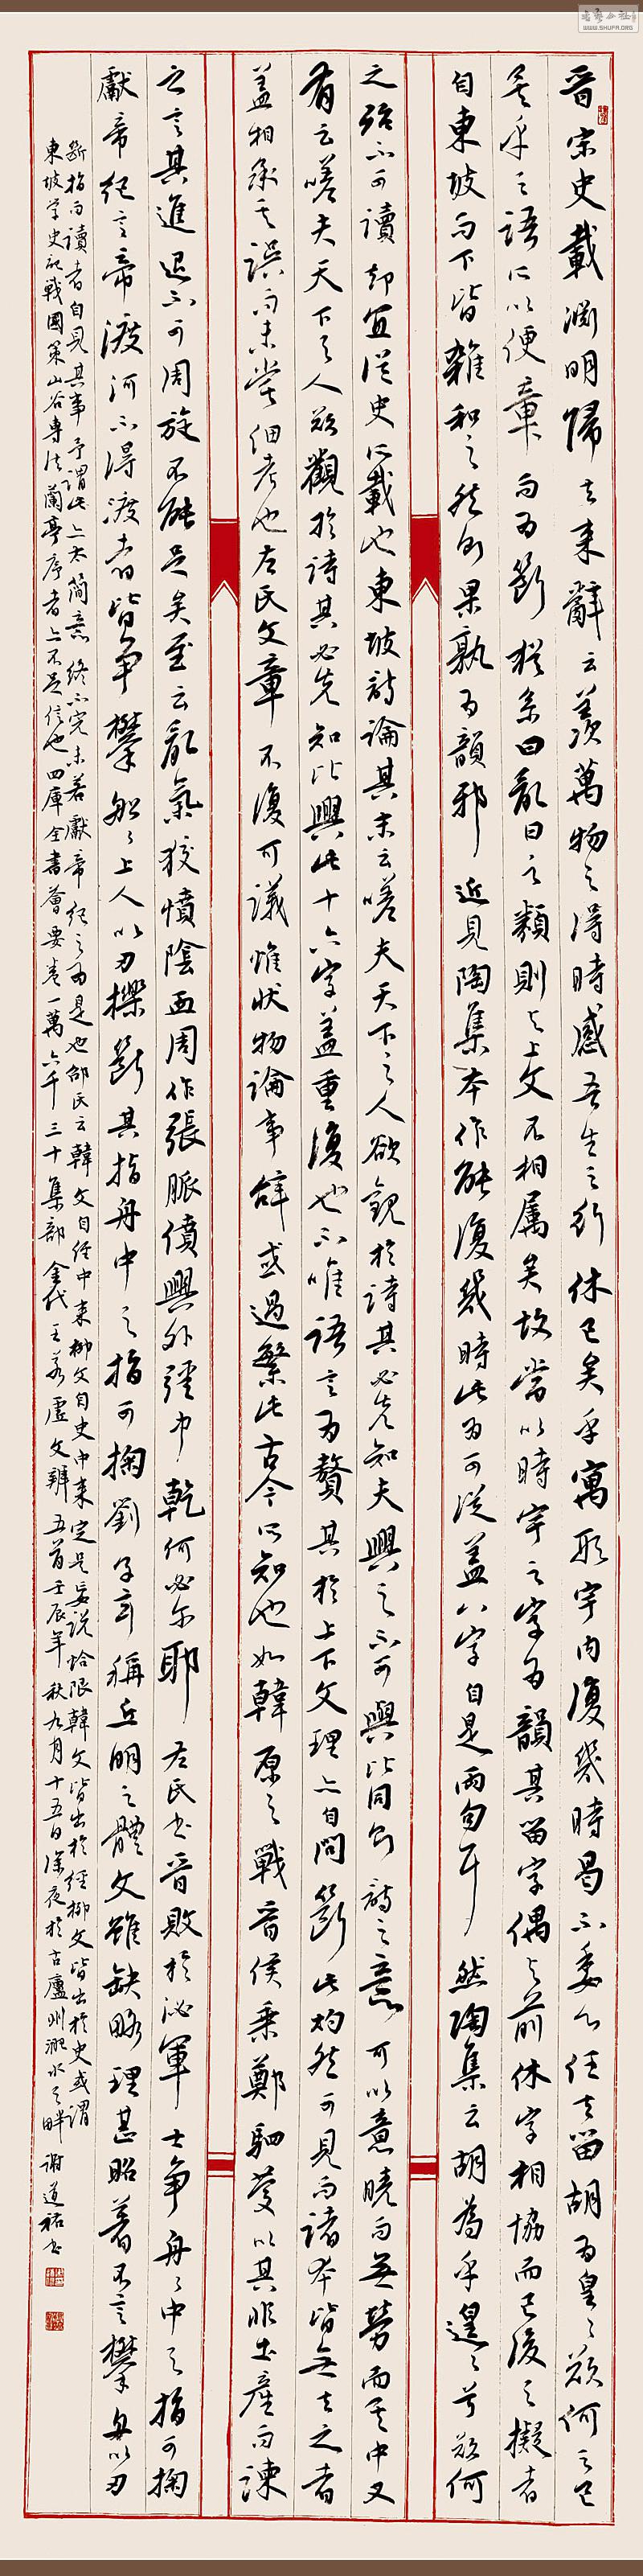 晋宋史載淵明歸去来辭云羡萬物之得時感吾生之行休已矣乎寓形宇内復幾時曷不委心任去留胡為皇〻欲何之已
矣乎之語所以便章而為斷猶系曰亂曰之類則与上文不相属矣故當以時字之字為韻其留字偶与前休字相協而已後之擬者
自東坡而下皆雜和之然則果孰為韻邪 近見陶集本作能復幾時此為可從盖八字自是兩句耳 然陶集云胡為乎遑〻兮欲何
之殆不可讀却宜從史所載也東坡詩論其末云嗟夫天下之人欲觀於詩其必先知夫興之不可與比同則詩之意可以意曉而無勞而其中又
有云嗟夫天下之人欲觀於詩其必先知比興此十六字盖重復也不唯語言為贅其於上下文理亦自間斷此灼然可見而諸本皆無去之者
盖相承其誤而未嘗細考也左氏文章不復可議惟状物論事辭或過繁此古今所知也如韓原之戰晋侯乗鄭駟慶以其非土産而諫
之言其進退不可周旋不能足矣至云亂氣狡憤陰血周作張脈僨興外彊中乾何必尔耶 左氏書晋敗於泌軍士争舟〻中之指可掬
獻帝紀言帝渡河不得渡者皆争攀船〻上人以刃櫟斷其指舟中之指可掬劉子玄稱丘明之體文雖缺略理甚昭著不言攀舟以刃
斷指而讀者自見其事予謂此亦太簡意終不完未若獻帝紀之為是也邵氏云韓文自经中来柳文自史中来定是妄説恰限韓文皆出於經柳文皆出於史或謂
東坡学史記戰國策山谷專法蘭亭序者亦不足信也 四庫全書薈要卷一萬六千三十集部 金代王若虛文辨五首壬辰年秋九月十五日深夜於古廬州淝水之畔 謝道祐書
WWW.SHUFA.ORG